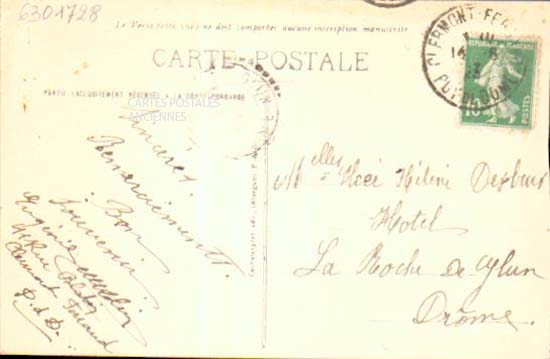 6301728
Le Verso cette carte ne doit comporter aucune inscription manuscrite
CARTE POSTALE
PARTIE EXCLUSIVEMENT RÉSERVÉE A LA CORRESPONDANCE
CARTES POSTALES
ANCIENNES
Sincères
Remerciements
Bon
Souvenir
Eugénie
4 Rue
Clermont Ferrand
P. d. D.
CLERMONT-FER
PUY-DE-DOME
REPUBLIQUE FRANÇAISE
10
POSTES
Melles Hélène
Hotel
La Roche de Glun
Drôme